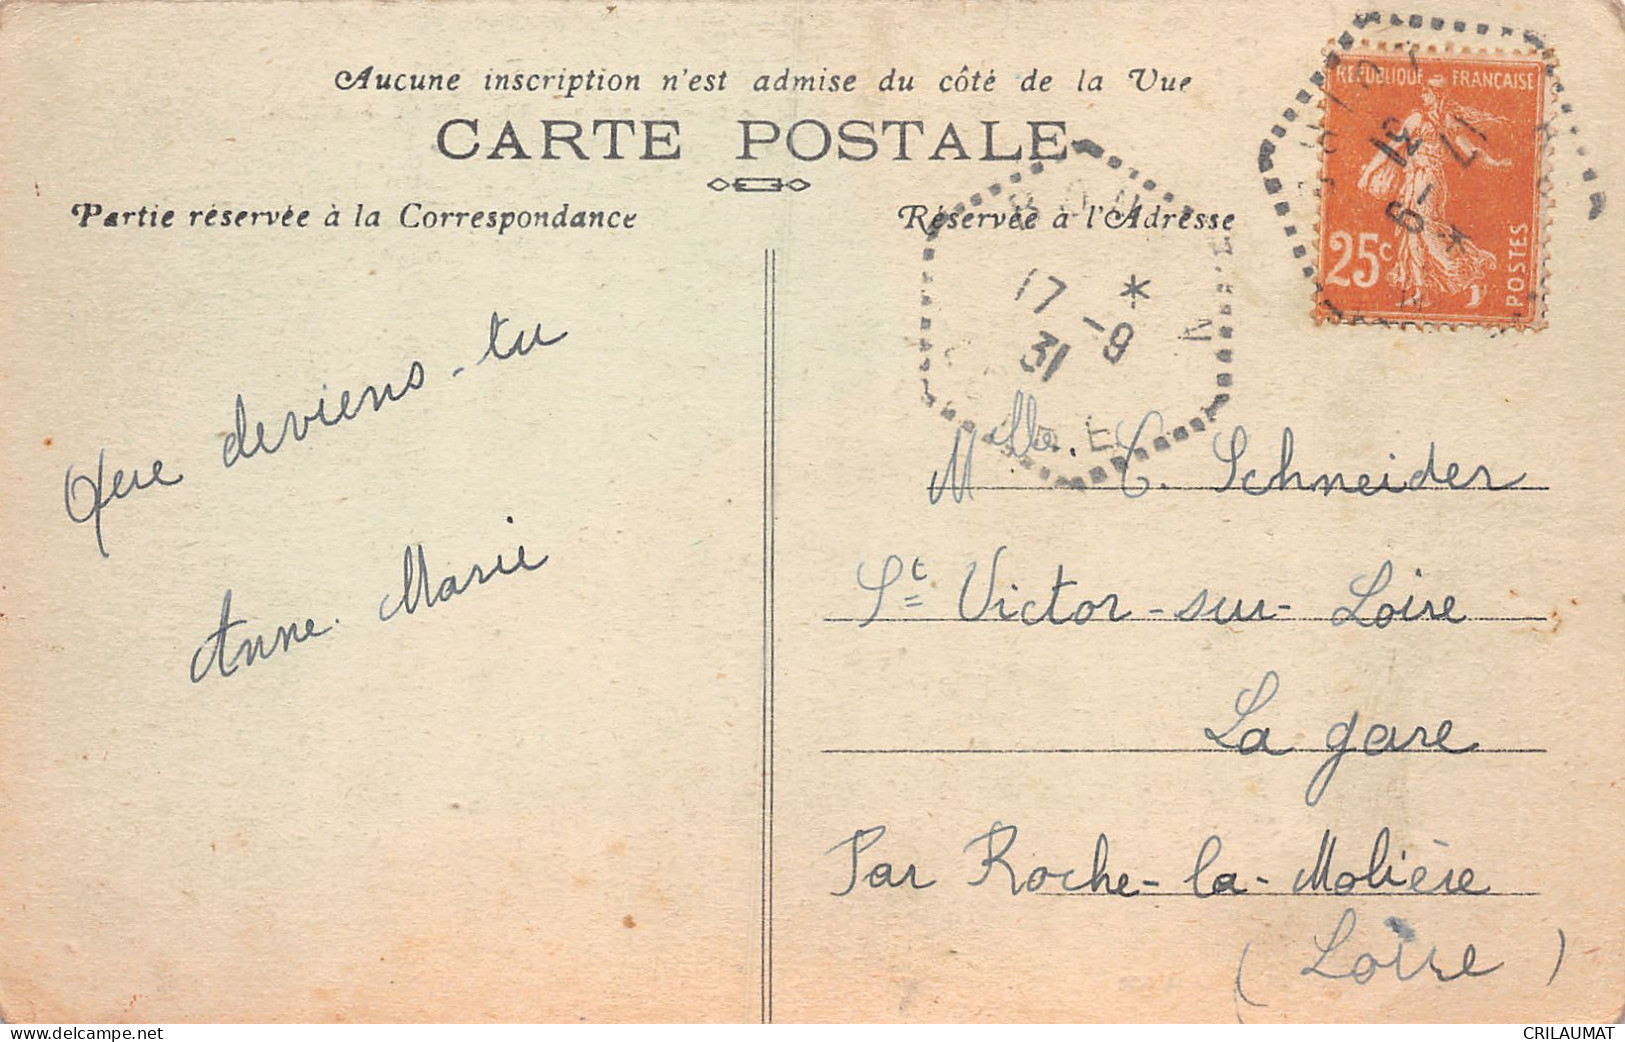 Aucune inscription n'est admise du côté de la Vue
CARTE POSTALE
Partie réservée à la Correspondance
Réservée à l'Adresse
RÉPUBLIQUE FRANÇAISE
25c
POSTES
17 *
31 -9
17 *
31 -9
Que deviens-tu
Anne-Marie
Mlle. C. Schneider
St Victor-sur-Loire
La gare
Par Roche-la-Molière
(Loire)
CRILAUMAT